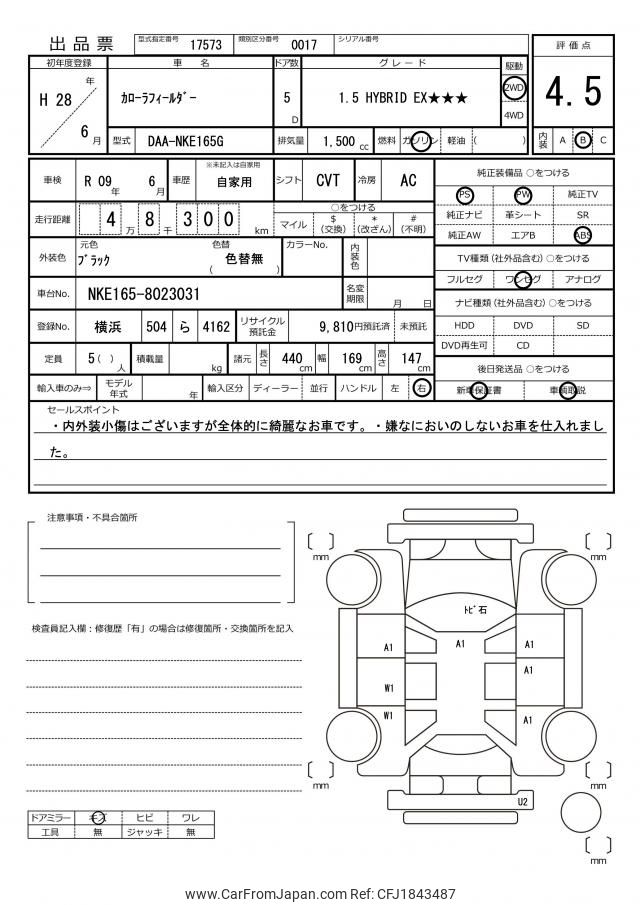 出品票 型式指定番号 17573 類別区分番号 0017 シリアル番号
評価点
4.5
内装 A B C
初年度登録 車名 ドア数 グレード 駆動
H 28 年 6 月
カローラフィールダー
5 D
1.5 HYBRID EX★★★
2WD
4WD
型式 DAA-NKE165G 排気量 1,500 cc 燃料 ガソリン 軽油 ( )
車検 R 09 年 6 月 車歴 ※未記入は自家用 自家用 シフト CVT 冷房 AC
走行距離 4 万 8 千 300 km
○をつける
マイル $ (交換) * (改ざん) # (不明)
外装色 元色 ブラック 色替 ( 色替無 ) カラーNo. 内装色
車台No. NKE165-8023031 名変期限 月 日
登録No. 横浜 504 ら 4162 リサイクル預託金 9,810円預託済 未預託
定員 5 ( ) 人 積載量 kg 諸元 長さ 440 cm 幅 169 cm 高さ 147 cm
輸入車のみ⇒ モデル年式 年 輸入区分 ディーラー 並行 ハンドル 左 右
純正装備品 ○をつける
PS PW 純正TV
純正ナビ 革シート SR
純正AW エアB ABS
TV種類 (社外品含む) ○をつける
フルセグ ワンセグ アナログ
ナビ種類 (社外品含む) ○をつける
HDD DVD SD
DVD再生可 CD
後日発送品 ○をつける
新車保証書 車輌取説
セールスポイント
・内外装小傷はございますが全体的に綺麗なお車です。・嫌なにおいのしないお車を仕入れまし
た。
注意事項・不具合箇所
検査員記入欄：修復歴「有」の場合は修復箇所・交換箇所を記入
ドアミラー キズ ヒビ ワレ
工具 無 ジャッキ 無
mm
mm
トビ石
A1
A1
A1
A1
W1
W1
A1
mm
mm
U2
mm
www.CarFromJapan.com Ref: CFJ1843487